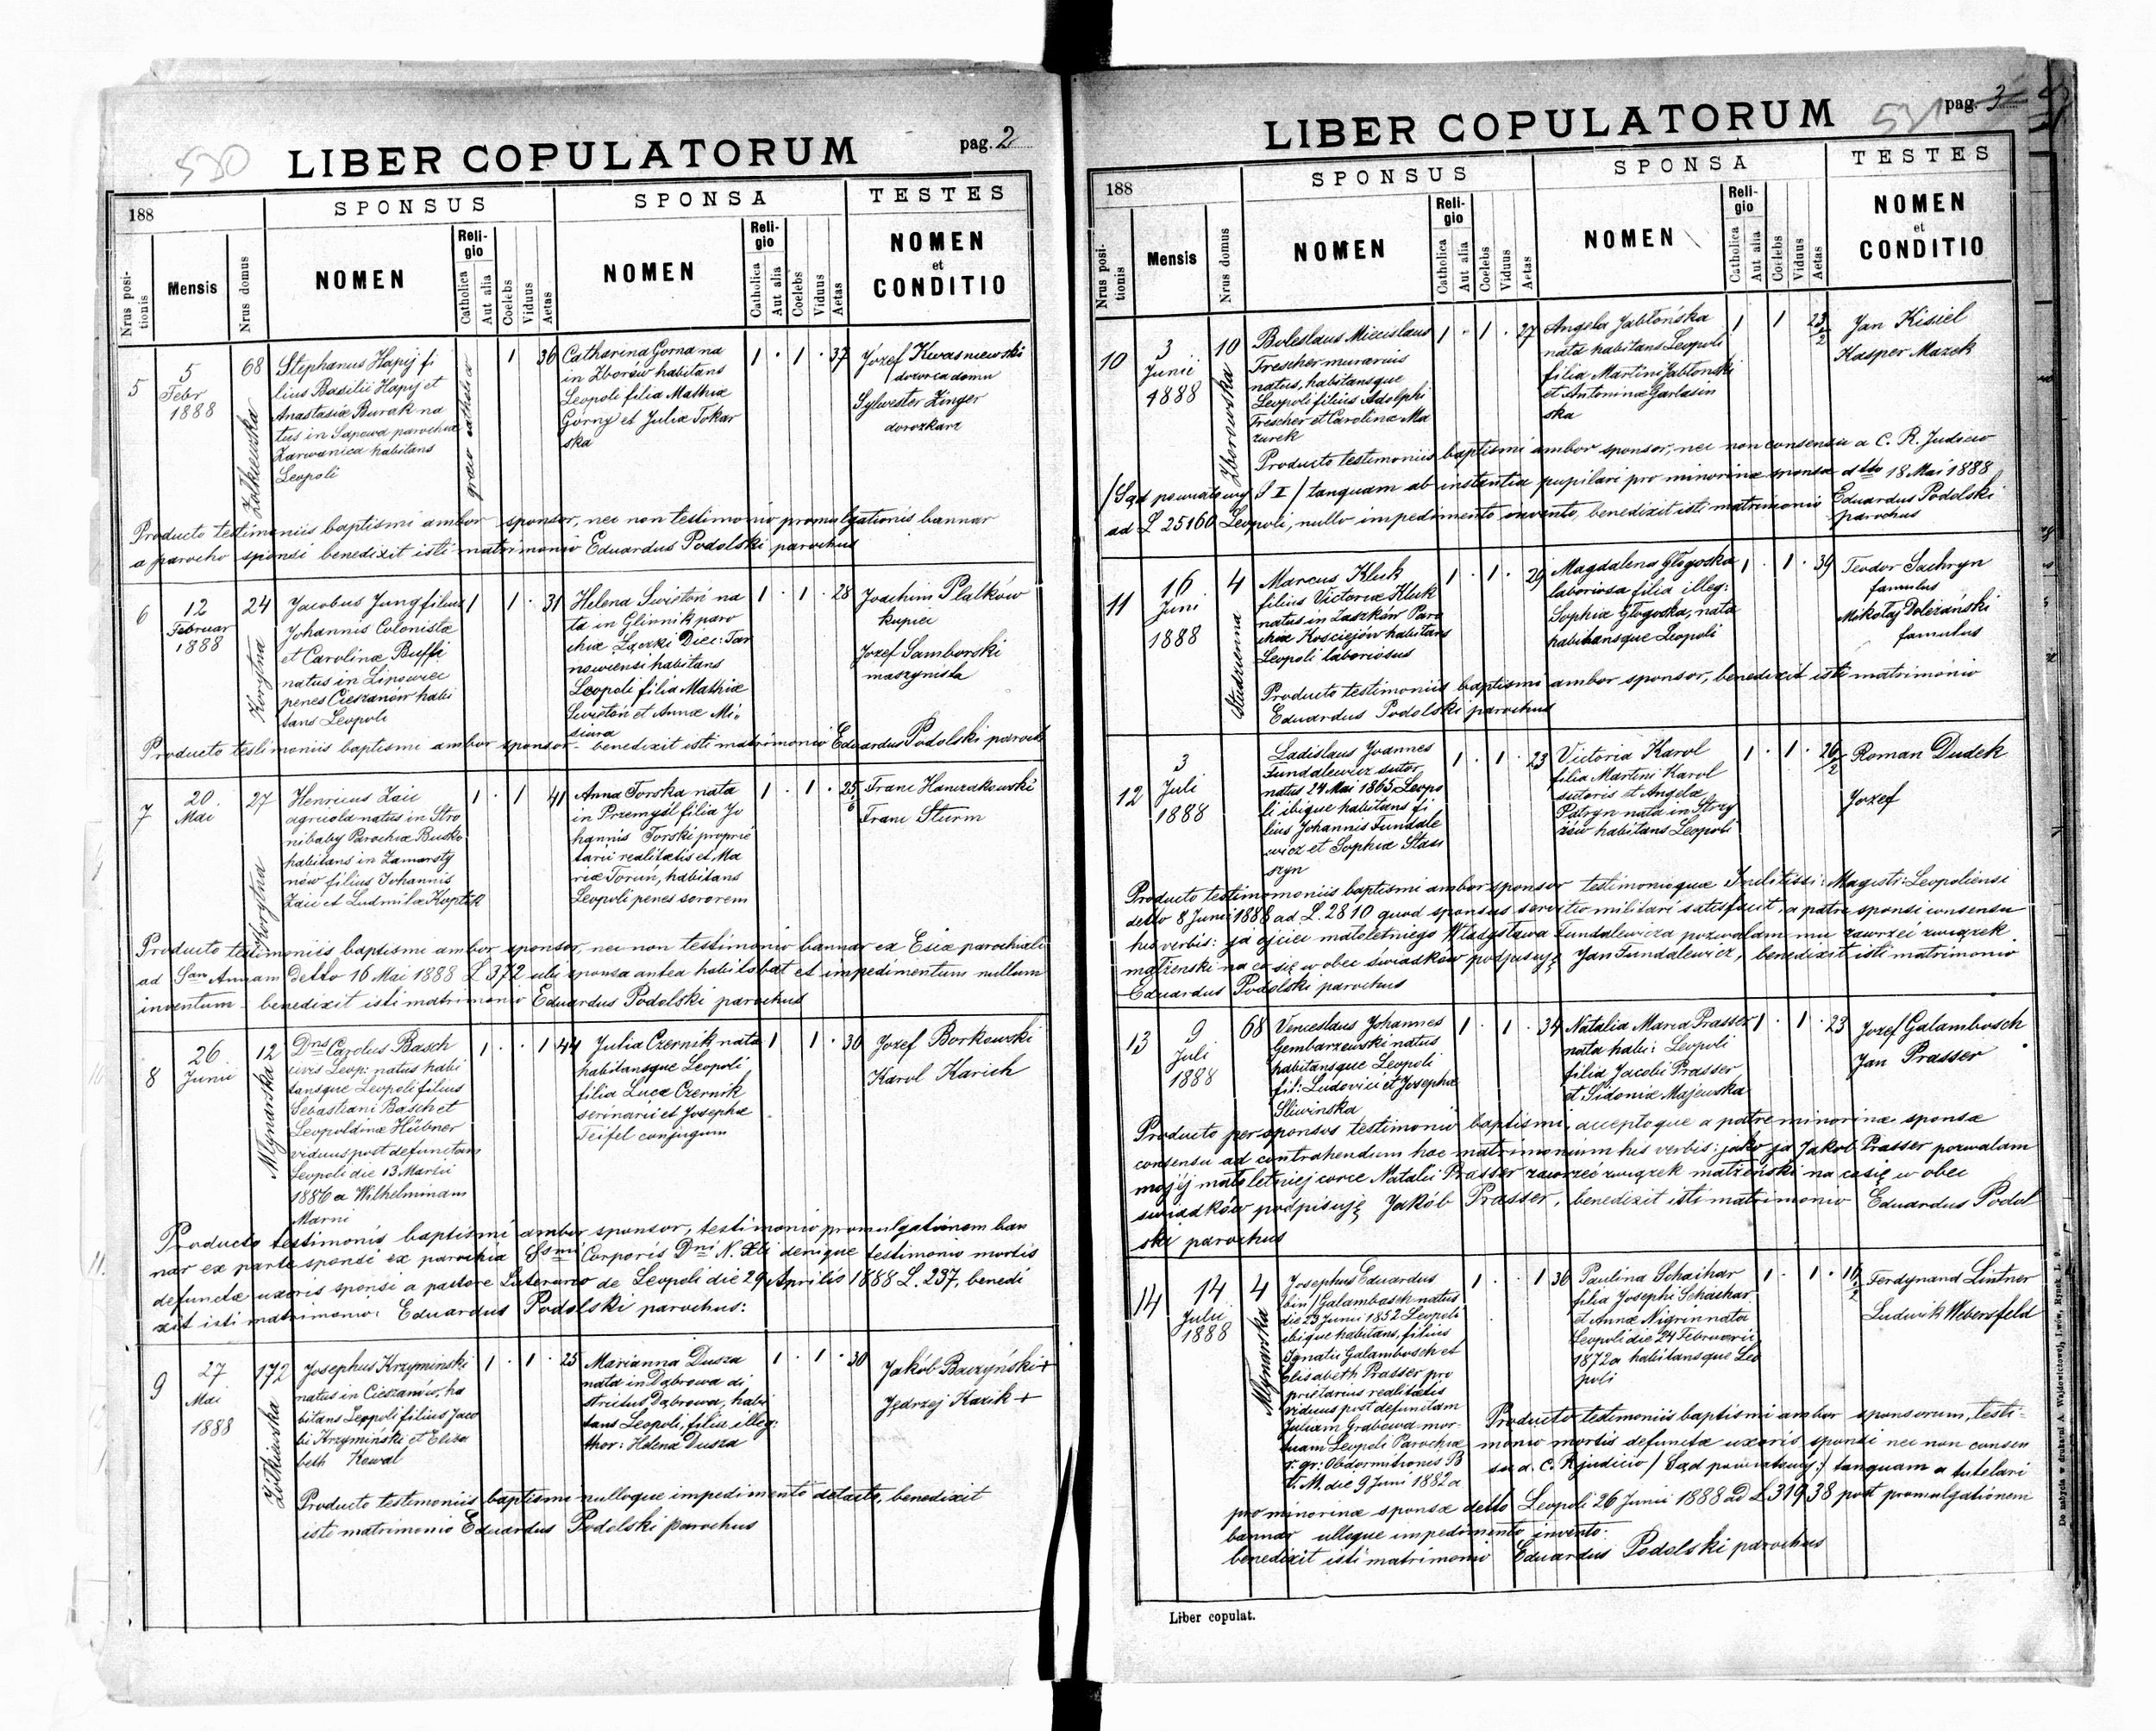 530
LIBER COPULATORUM
pag. 2
188
SPONSUS
SPONSA
TESTES
Nrus positionis
Mensis
Nrus domus
NOMEN
Religio
Catholica
Aut alia
Coelebs
Viduus
Aetas
NOMEN
Religio
Catholica
Aut alia
Coelebs
Viduus
Aetas
NOMEN
et
CONDITIO
5
5
Febr
1888
68
Żółkiewska
Stephanus Hapij fi
lius Basilii Hapij et
Anastasiæ Burak na
tus in Sapowa parochiæ
Zarwanica habitans
Leopoli
græco catholica
1
36
Catharina Gorna na
in Zborów habitans
Leopoli filia Mathiæ
Górny et Julia Tokar
ska
1 · 1 · 37
Józef Kwasniewski
dozorca domu
Sylwester Zinger
dorożkarz
Producto testimoniis baptismi ambor sponsor, nec non testimonio promulgationis bannar
a parocho sponsi benedixit isti matrimonio Eduardus Podolski parochus
6
12
Februar
1888
24
Korytna
Jacobus Jung filius
Johannis Colonistæ
et Carolinæ Buffi
natus in Lipowiec
penes Cieszanów habi
tans Leopoli
1 1 · 31
Helena Swieton na
ta in Glinnik paro
chiæ Łączki Diec: Tar
nowiensi habitans
Leopoli filia Mathiæ
Swieton et Annæ Mi
siura
1 · 1 · 28
Joachim Platków
kupiec
Jozef Samborski
maszynista
Producto testimoniis baptismi ambor sponsor - benedixit isti matrimonio Eduardus Podolski paroch
7
20.
Mai
27
Korytna
Henricus Zaic
agricola natus in Stro
nibaby Parochiæ Busko
habitans in Zamarsty
nów filius Johannis
Zaic et Ludmilæ
1 · 1 41
Anna Torska nata
in Przemysl filia Jo
hannis Torski proprie
tarii realitatis et Ma
riæ Toruń, habitans
Leopoli penes sororem
1 · 1 · 25
Franc Hanczakowski
Franc Sturm
Producto testimoniis baptismi ambor sponsor, nec non testimonio bannar ex Esiæ parochiali
ad San Annam detto 16 Mai 1888 L 372 ubi sponsa antea habitabat et impedimentum nullum
inventum - benedixit isti matrimonio Eduardus Podolski parochus
8
26.
Junii
12
Młynarska
Dns Carolus Basch
civis Leop: natus habi
tansque Leopoli filius
Sebastiani Basch et
Leopoldinæ Hübner
viduus post defunctam
Leopoli die 13 Martii
1886 a Wilhelminam
Marni
1 · · 1 44
Julia Czernik nata
habitansque Leopoli
filia Lucæ Czernik
scrinarii et Josephæ
Teifel conjugum
1 1 · 30
Jozef Borkowski
Karol Karich
Producto testimonis baptismi ambor sponsor, testimonio promulgationem ban
nar ex parte sponsi ex parochia Ssmi Corporis Dni N. Xti denique testimonio mortis
defunctæ uxoris sponsi a pastore Luterano de Leopoli die 29 Aprilis 1888 L. 237, benedi
xit isti matrimonio: Eduardus Podolski parochus:
9
27
Mai
1888
172
Żółkiewska
Josephus Krzyminski
natus in Cieszanów, ha
bitans Leopoli filius Jaco
bi Krzymiński et Elisa
beth Kowal
1 · 1 · 25
Marianna Dusza
nata in Dąbrowa di
strictus Dąbrowa, habi
tans Leopoli, filia illeg:
thor: Helena Dusza
1 · 1 · 30
Jakób Baczyński +
Jędrzej Kazik +
Producto testimoniis baptismi nulloque impedimento detecto, benedixit
isti matrimonio Eduardus Podolski parochus
531
LIBER COPULATORUM
pag. 3
188
SPONSUS
SPONSA
TESTES
Nrus positionis
Mensis
Nrus domus
NOMEN
Religio
Catholica
Aut alia
Coelebs
Viduus
Aetas
NOMEN
Religio
Catholica
Aut alia
Coelebs
Viduus
Aetas
NOMEN
et
CONDITIO
10
3
Junii
1888
10
Zborowska
Boleslaus Miecislaus
Trescher murarius
natus, habitansque
Leopoli filius Adolphi
Trescher et Carolinæ Ma
zurek
1 · 1 · 27
Angela Jabłońska
nata habitans Leopoli
filia Martini Jabłonski
et Antoninæ Garlasin
ska
1 1
Jan Kisiel
Kasper Mazek
Producto testimoniis baptismi ambor sponsor, nec non consensu a C. R. Judicio
/Sąd powiatowy S I/ tanquam ab instantia pupilari pro minorina sponsa dtto 18 Mai 1888
ad L 25160 Leopoli, nullo impedimento invento, benedixit isti matrimonio Eduardus Podolski
parochus
11
16
Juni
1888
4
Studzienna
Marcus Kluk
filius Victoriæ Kluk
natus in Zaszków Paro
chiæ Kosciejów habitans
Leopoli laboriosus
1 · 1 · 29
Magdalena Głogoska
laboriosa filia illeg:
Sophiæ Głogoska, nata
habitansque Leopoli
1 · 1 · 39
Teodor Sachryn
famulus
Mikołaj Doleżański
famulus
Producto testimoniis baptismi ambor sponsor, benedixit isti matrimonio
Eduardus Podolski parochus
12
3
Juli
1888
Ladislaus Joannes
Fundalewicz sutor
natus 24 Mai 1865 Leopo
li ibique habitans fi
lius Johannis Fundale
wicz et Sophiæ Stasi
szyn
1 · 1 · 23
Victoria Karol
filia Martini Karol
sutoris et Angelæ
Patryn nata in Strzy
żów habitans Leopoli
1 · 1 ·
Roman Dudek
Jozef
Producto testimomoniis baptismi ambor sponsor testimonioque Inclitissi: Magisti: Leopoliensi
detto 8 Junii 1888 ad L. 2810 quod sponsus servitio militari satisfecit, a patre sponsi consensu
his verbis: ja ojciec małoletniego Władysława Fundalewicza pozwalam mu zawrzeć związek
małżenski na co się w obec świadków podpisuję Jan Fundalewicz, benedixit isti matrimonio
Eduardus Podolski parochus
13
9
Juli
1888
68
Venceslaus Johannes
Gembarzewski natus
habitansque Leopoli
fil: Ludovici et Josephæ
Sliwinska
1 · 1 · 34
Natalia Maria Prasser
nata habi: Leopoli
filia Jacobi Prasser
et Sidoniæ Majewska
1 · 1 · 23
Jozef Galambosch
Jan Prasser
Producto per sponsos testimonio baptismi, acceptoque a patre minorinæ sponsæ
consensu ad contrahendum hoc matrimonium his verbis: jako ja Jakob Prasser pozwalam
mojéj małoletniej corce Natalii Prasser zawrzeć związek małżeński na co się w obec
swiadków podpisuję Jakób Prasser, benedixit isti matrimonio Eduardus Podol
ski parochus
14
14
Julii
1888
4
Młynarska
Josephus Eduardus
bin/ Galambosch natus
die 23 Junii 1852 Leopoli
ibique habitans, filius
Ignatii Galambosch et
Elisabeth Prasser pro
prietarius realitatis
viduus post defunctam
Juliam Grabowa mor-
tuam Leopoli Parochiæ
r. gr: Obdormitiones B
V. M. die 9 Juni 1882 a
1 · 1 36
Paulina Schaihar
filia Josephi Schaihar
et Annæ Nigrin nata
Leopoli die 24 Februarii
1872 a habitansque Leo
poli
1 · 1 ·
Ferdynand Lintner
Ludwik Webersfeld
Producto testimoniis baptismi ambor sponsorum, testi-
monio mortis defunctæ uxoris sponsi nec non consen
su a. C. R judicio / Sąd powiatowy:/ tanquam a tutelari
pro minorinæ sponsæ detto Leopoli 26 Junii 1888 ad L 31938 post promulgationem
bannar ulloque impedimento invento:
benedixit isti matrimonio Eduardus Podolski parochus
Liber copulat.
Do nabycia w drukarni A. Wajdowiczowej, Lwów, Rynek, l. 9.